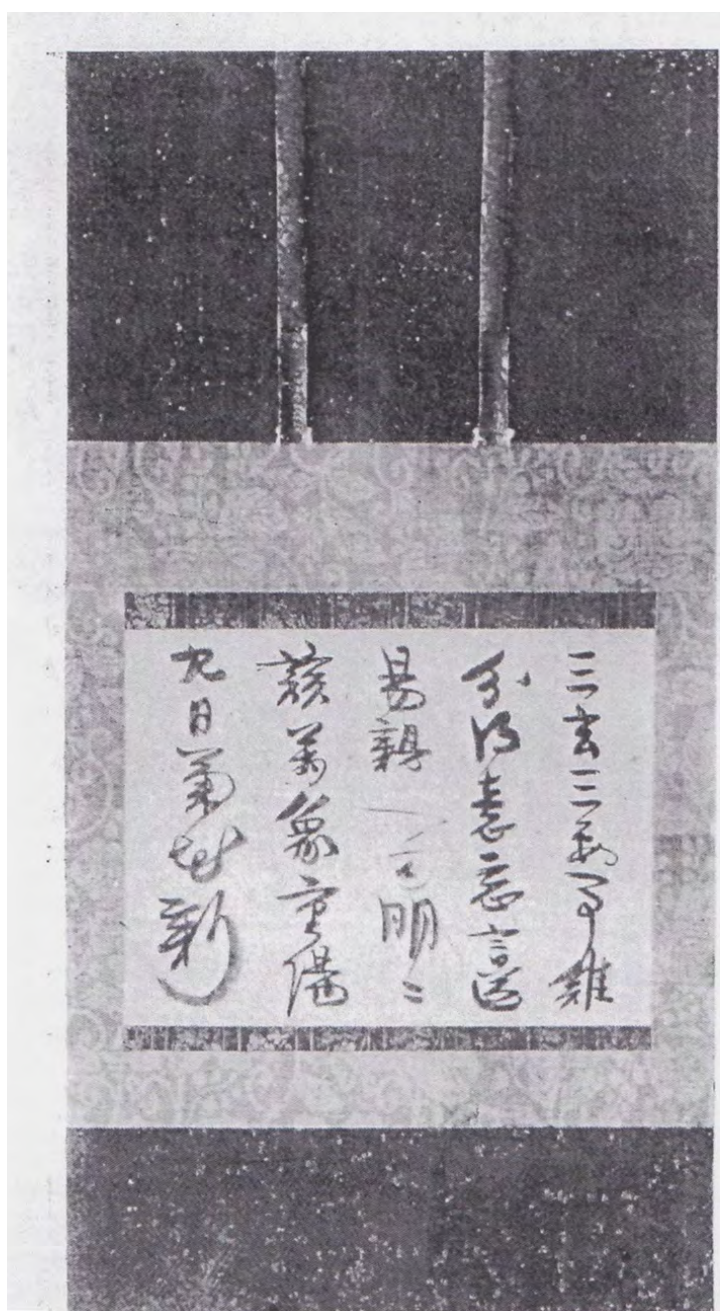 三玄三要事難
分得意忘言道
易親一句明〻
該萬象重陽
九日菊花新